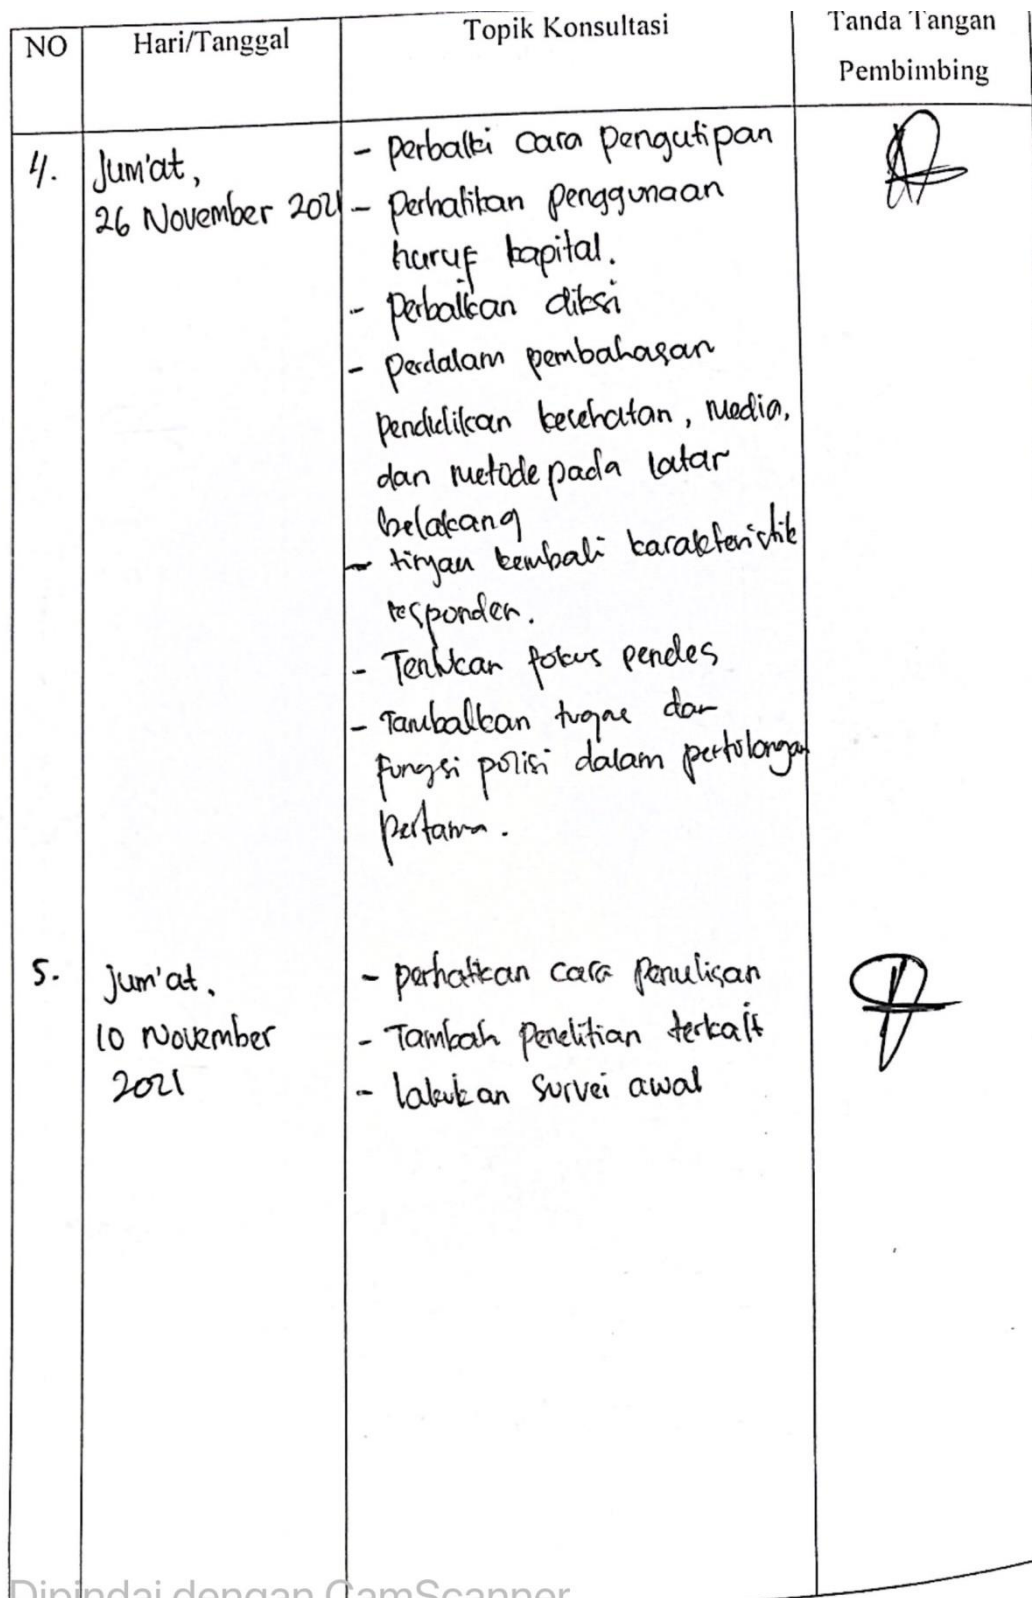 NO
Hari/Tanggal
Topik Konsultasi
Tanda Tangan
Pembimbing
4.
Jum'at,
26 November 2021
- Perbaiki Cara Pengutipan
- Perhatikan Penggunaan
huruf kapital.
- Perbaikan diksi
- Perdalam pembahasan
pendidikan kesehatan, media,
dan metode pada latar
belakang
- tinjau kembali karakteristik
responden.
- Tentukan fokus pendes
- Tambahkan tugas dan
fungsi polisi dalam pertolongan
pertama.
5.
Jum'at,
10 November
2021
- perhatikan cara Penulisan
- Tambah Penelitian terkait
- lakukan Survei awal
Dipindai dengan CamScanner